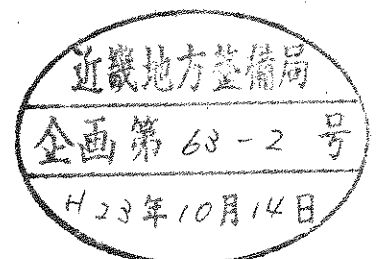 近畿地方整備局
企画第 63-2 号
H23年10月14日